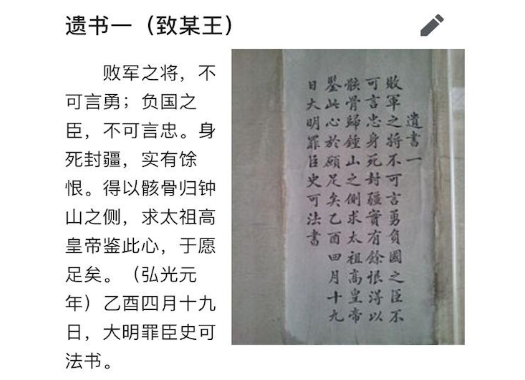 遗书一（致某王）
败军之将，不
可言勇；负国之
臣，不可言忠。身
死封疆，实有馀
恨。得以骸骨归钟
山之侧，求太祖高
皇帝鉴此心，于愿
足矣。（弘光元
年）乙酉四月十九
日，大明罪臣史可
法书。
遺書一
敗軍之將不可言勇負國之臣不
可言忠身死封疆實有餘恨得以
骸骨歸鍾山之側求太祖高皇帝
鑒此心於願足矣乙酉四月十九
日大明罪臣史可法書